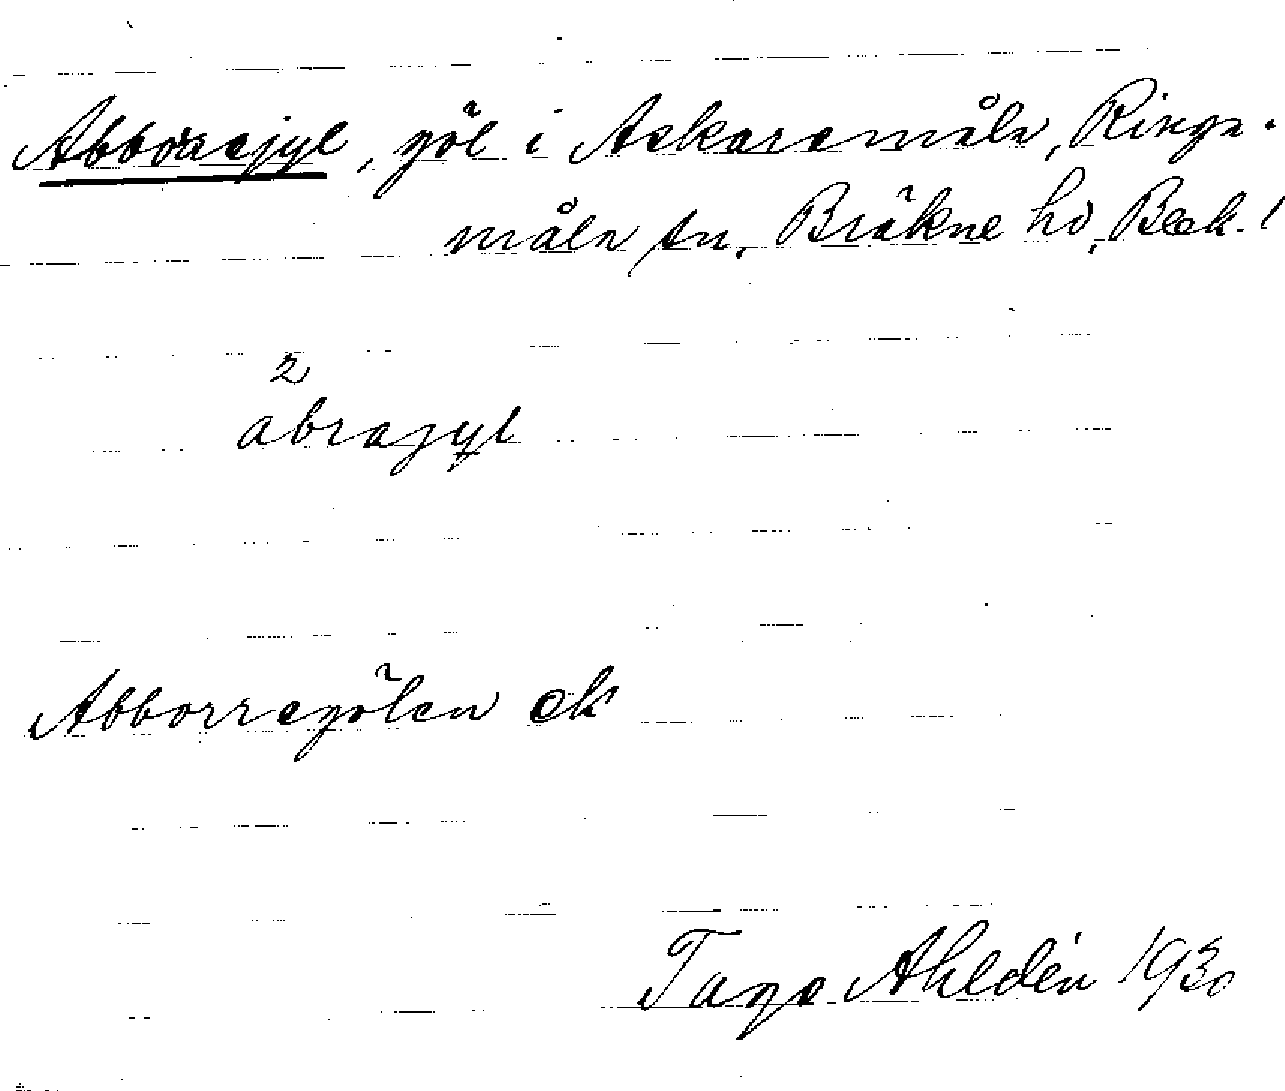 Abborrejyl, göl i Askaremåla, Ringa-
måla sn, Bräkne hd, Blek.!
2
abrajyl
Abborregölen ek
Tage Ahldén 1930